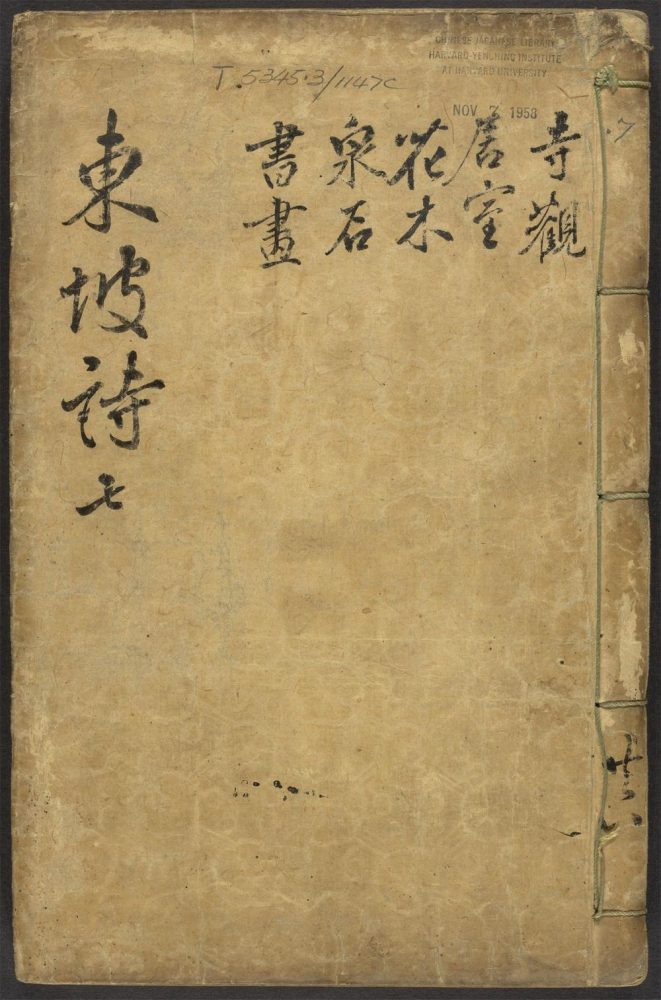 CHINESE JAPANESE LIBRARY
HARVARD-YENCHING INSTITUTE
AT HARVARD UNIVERSITY
T 5345.3/1147C
NOV 7 1953
.7
寺觀
居室
花木
泉石
書畫
東坡詩七